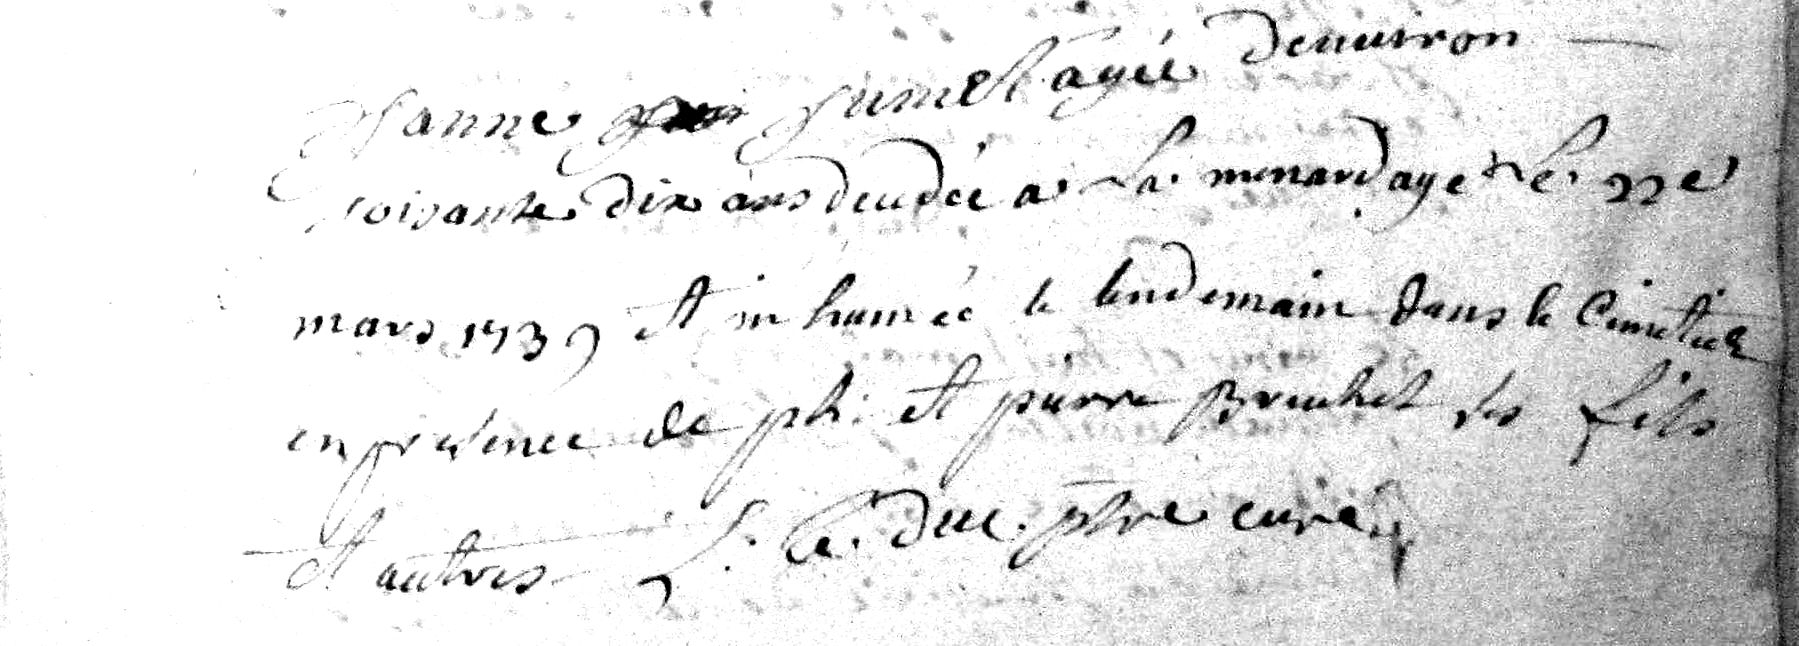 Jeanne Jumel agée denuiron
soisante dix ans decedée a la menardaye le 22e
mars 1739 et in humée le lendemain dans le Cimetiere
en presence de ph: et pierre Breuhet ses fils
et autres J. le duc. ptre curé